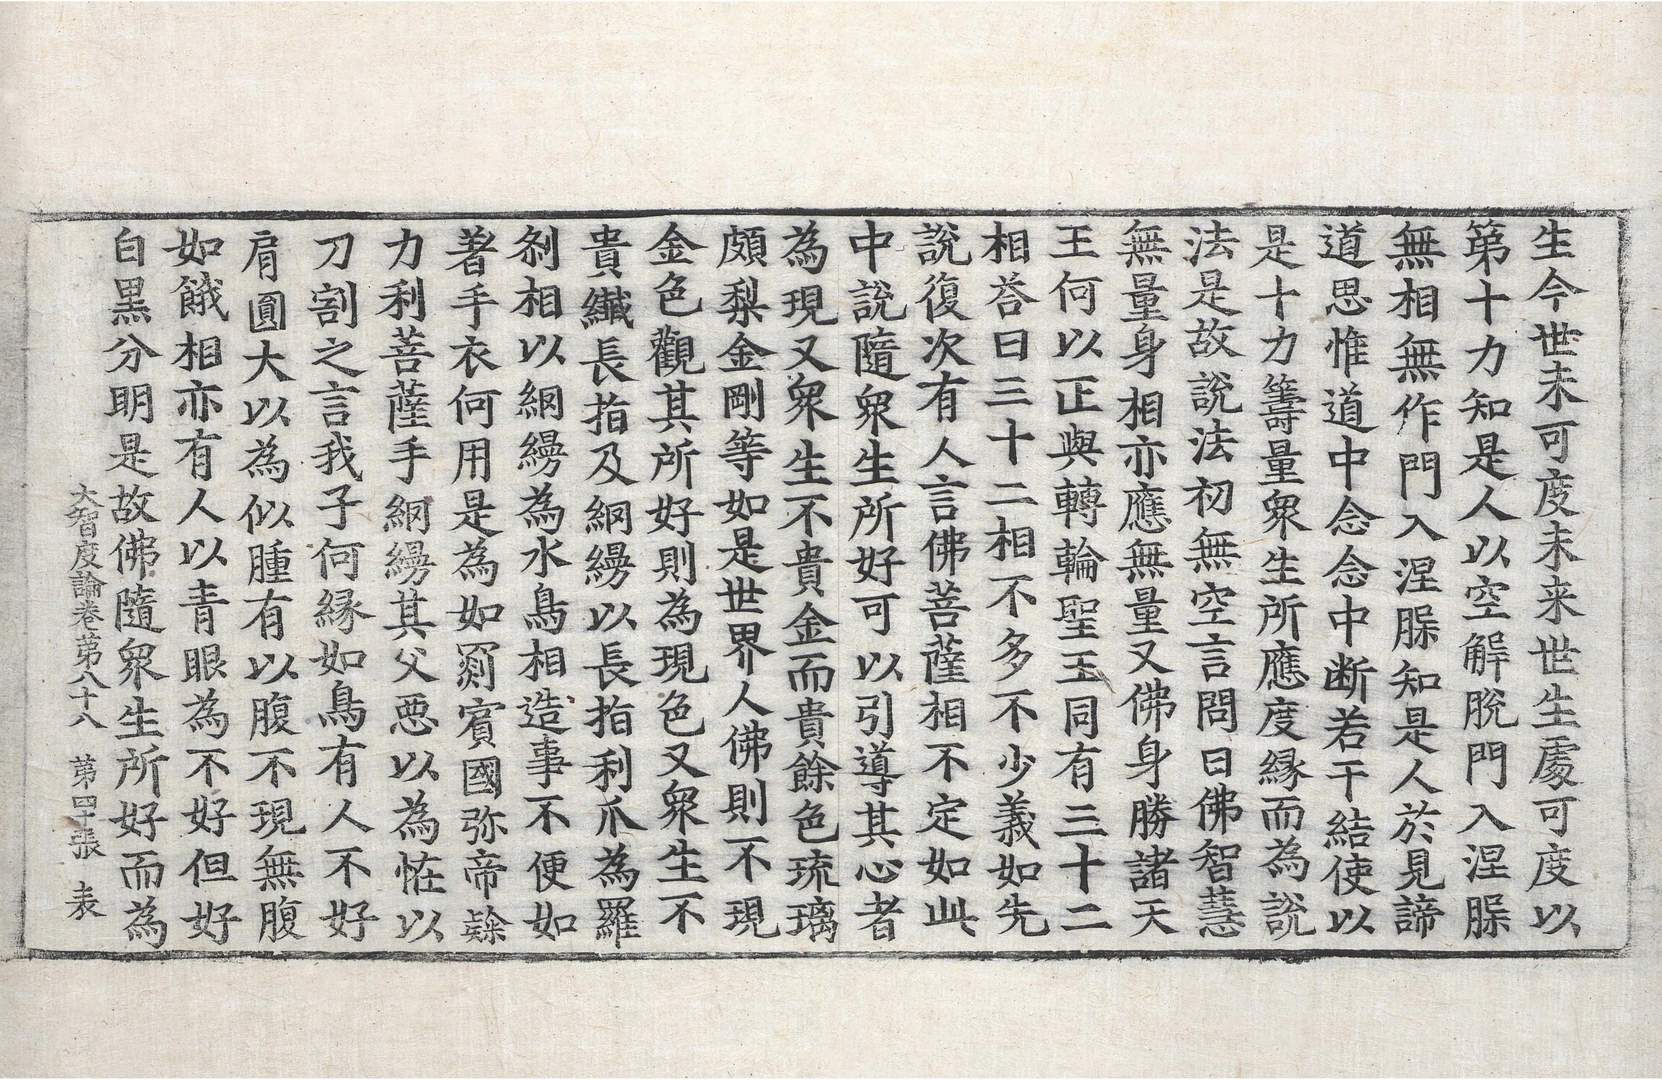 生今世未可度未来世生處可度以
第十力知是人以空解脫門入涅槃
無相無作門入涅槃知是人於見諦
道思惟道中念念中断若干結使以
是十力籌量衆生所應度緣而為說
法是故說法初無空言問曰佛智慧
無量身相亦應無量又佛身勝諸天
王何以正與轉輪聖王同有三十二
相荅曰三十二相不多不少義如先
說復次有人言佛菩薩相不定如此
中說隨衆生所好可以引導其心者
為現又衆生不貴金而貴餘色琉璃
頗梨金剛等如是世界人佛則不現
金色觀其所好則為現色又衆生不
貴纖長指及網縵以長指利爪為羅
剎相以網縵為水鳥相造事不便如
著手衣何用是為如罽賓國弥帝隸
力利菩薩手網縵其父惡以為恠以
刀割之言我子何緣如鳥有人不好
肩圓大以為似腫有以腹不現無腹
如餓相亦有人以青眼為不好但好
白黑分明是故佛隨衆生所好而為
大智度論卷第八十八 第四十張 表